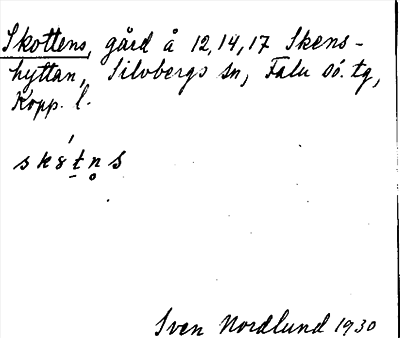 Skottens, gård å 12,14,17 Skens-
hyttan, Silvbergs sn, Falu sö. tg,
Kopp. l.
Sven Nordlund 1930